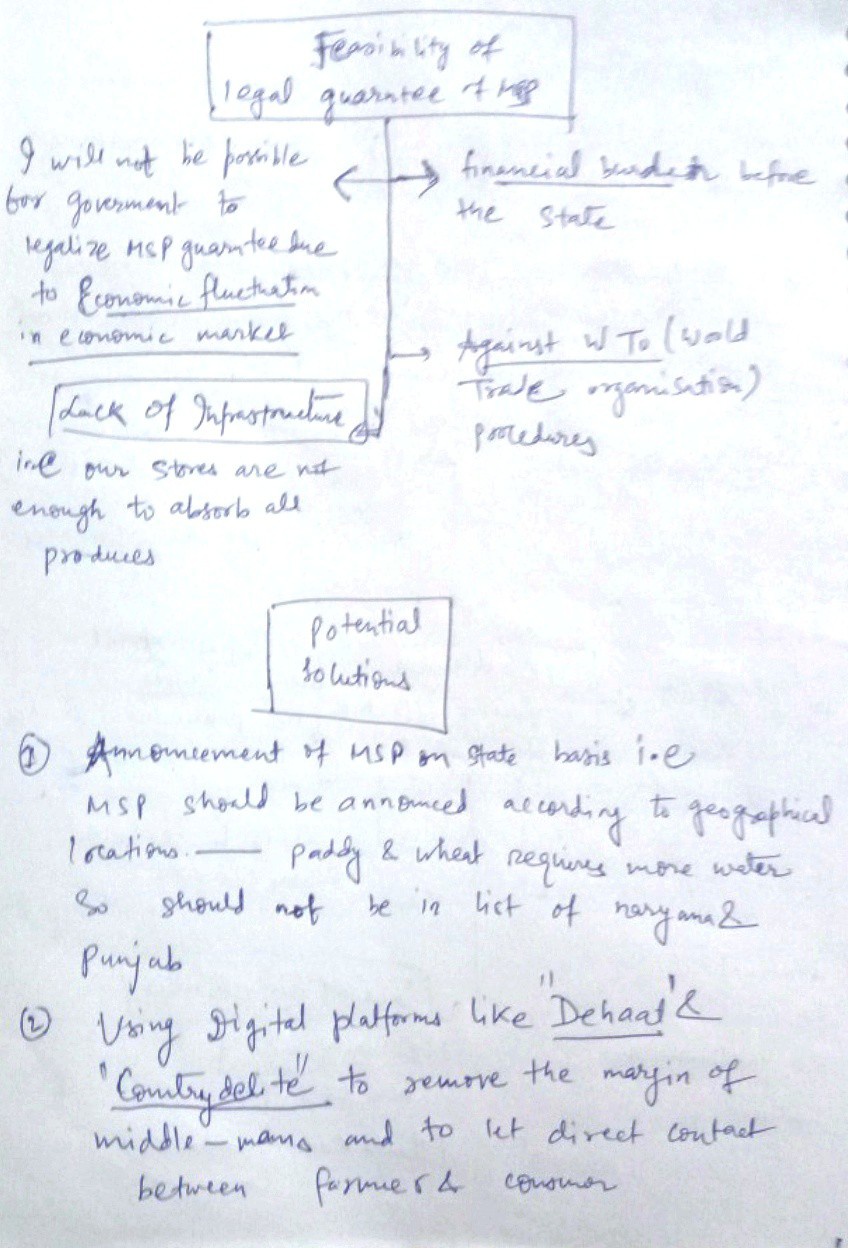 Feasibility of
legal guarntee of MSP
I will not be possible
for goverment to
legalize MSP guarntee due
to Economic fluctuation
in economic market
financial burden before
the State
Against WTO (World
Trade organisation)
procedures
Lack of Infrastructure
i.e our stores are not
enough to absorb all
produces
Potential
Solutions
① Announcement of MSP on state basis i.e
MSP should be announced according to geographical
locations. — paddy & wheat requires more water
So should not be in list of haryana &
Punjab
② Using Digital platforms like "Dehaat' &
"Countrydelite" to remove the margin of
middle-mans and to let direct contact
between farmers &